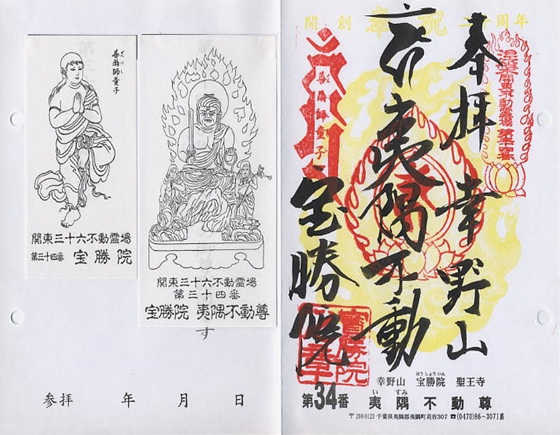 善爾師童子
関東三十六不動霊場
第三十四番 宝勝院
関東三十六不動霊場
第三十四番
宝勝院 夷隅不動尊
す
参拝 年 月 日
開創 二十周年
奉拝 幸野山
夷隅不動
宝勝院
善爾師童子
幸野山 宝勝院 聖王寺
ほうしょういん
第34番 夷隅不動尊
いすみ
〒298-0123 千葉県夷隅郡夷隅町苅谷307 ☎(0470)86-3071